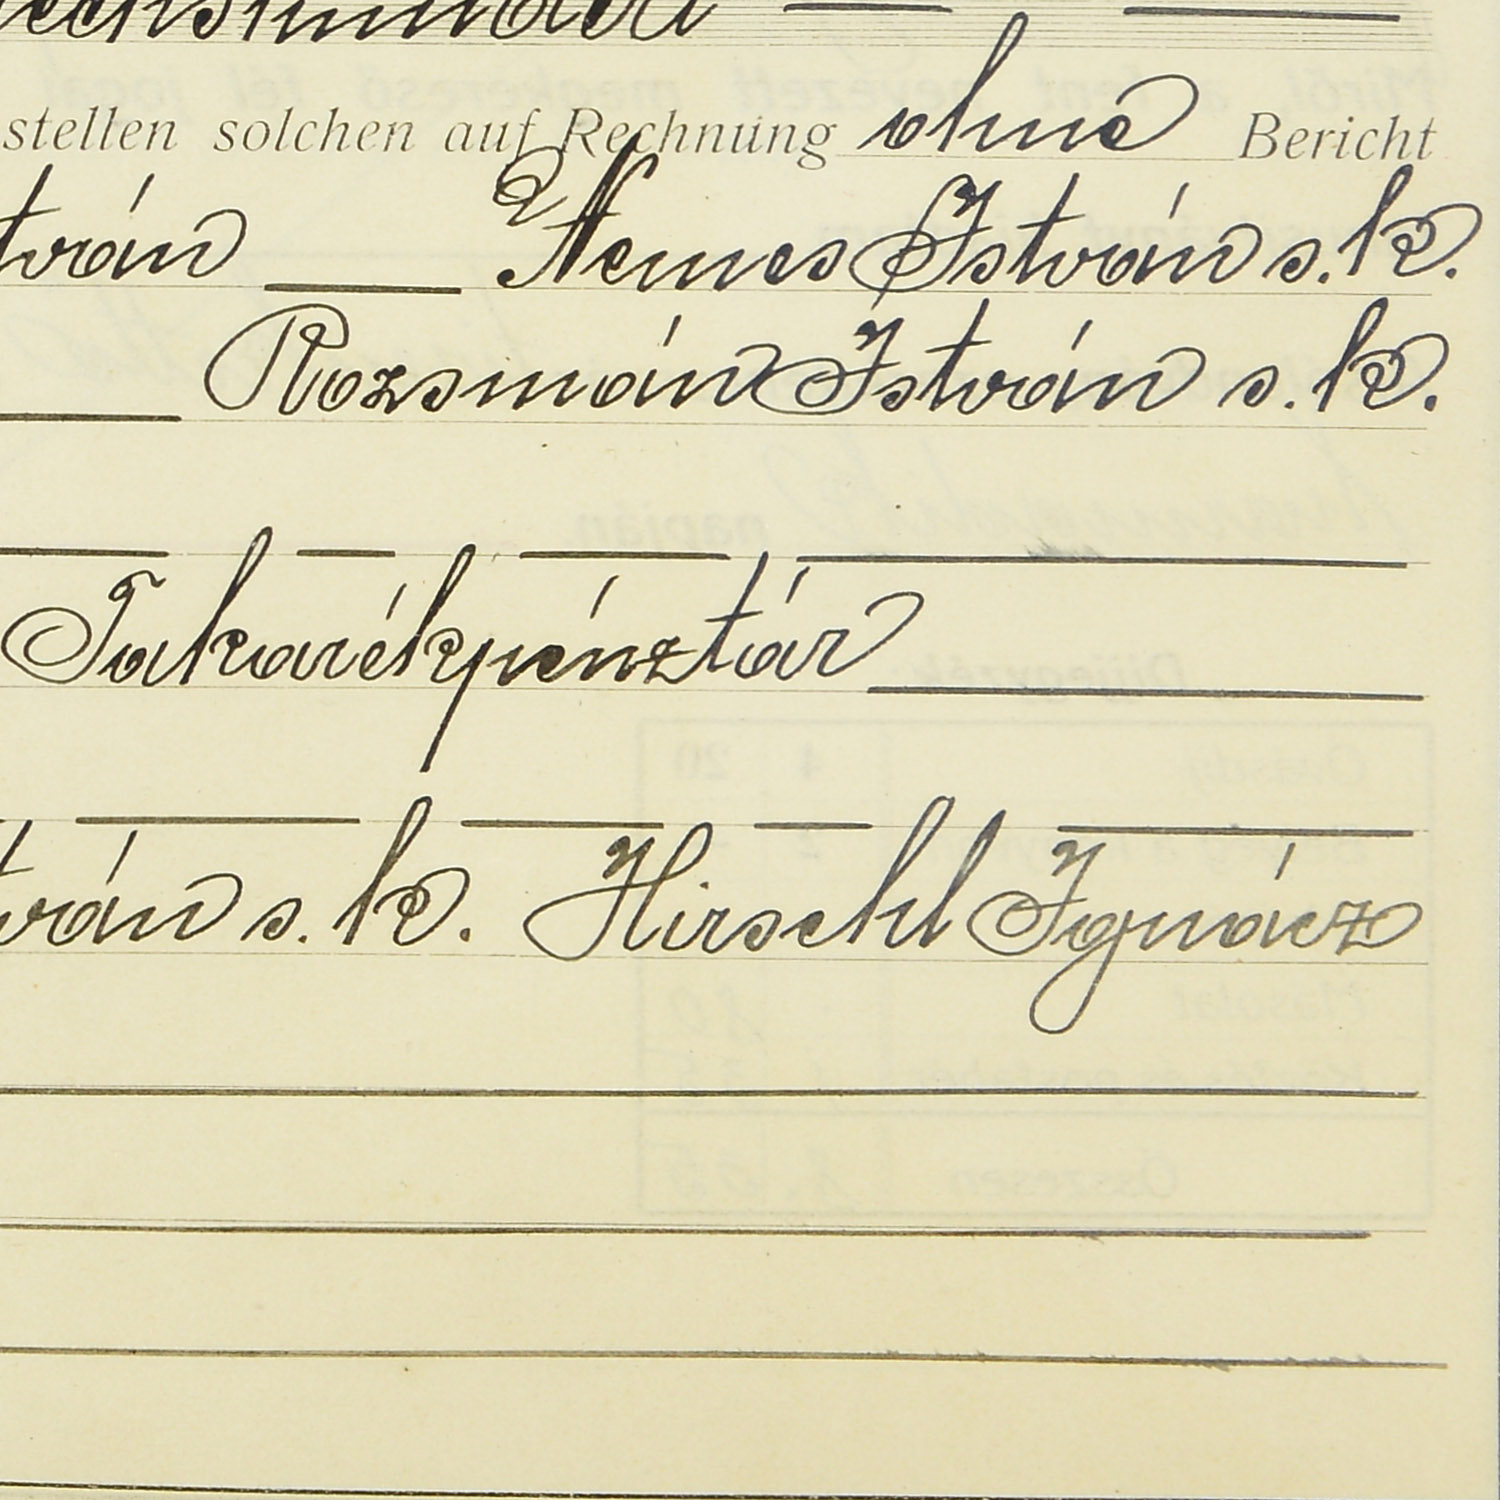 stellen solchen auf Rechnung ohne Bericht
tván Nemes István s. k.
Rozsmán István s. k.
Takarékpénztár
tván s. k. Hirschl Ignácz